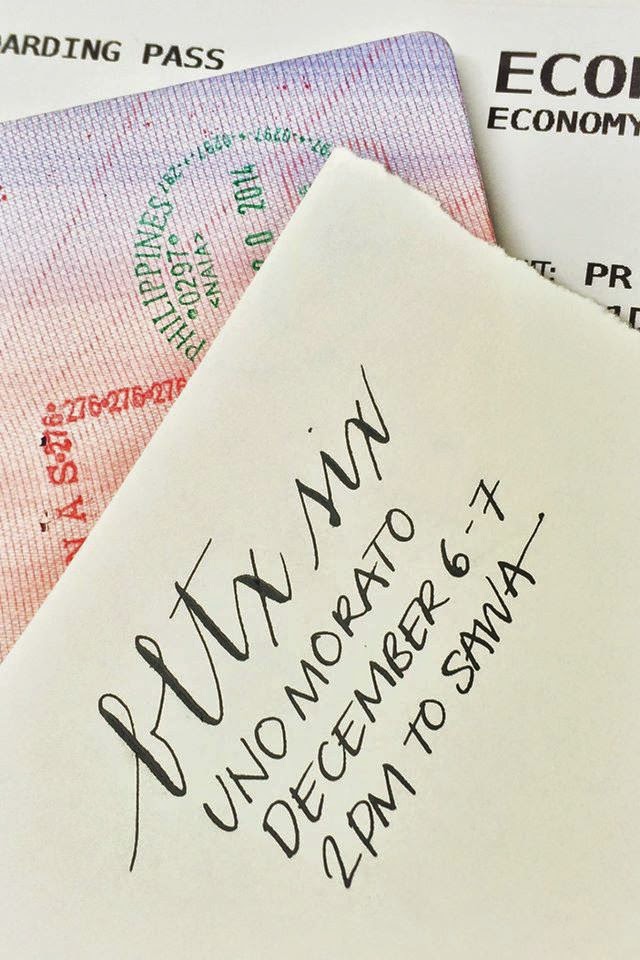 ARDING PASS
ECO
ECONOMY
PHILIPPINES
0297
<NAIA>
0 2014
297··0297··0297
276·276·276·276
AS
PR
bltx six
UNO MORATO
DECEMBER 6-7
2PM TO SAWA